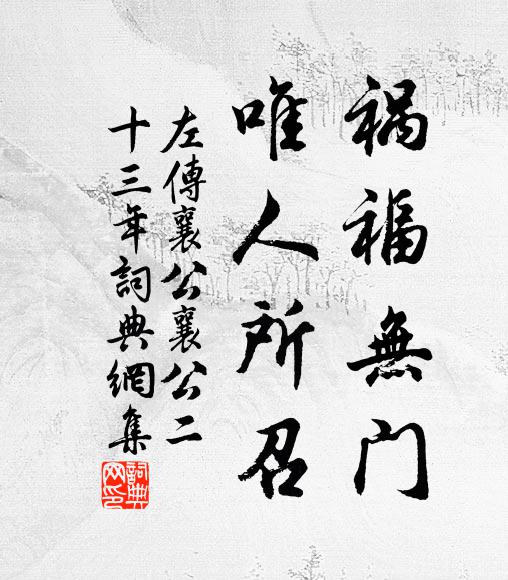 祸福無门
唯人所召
左傳襄公襄公二
十三年詞典網集
詞典网印